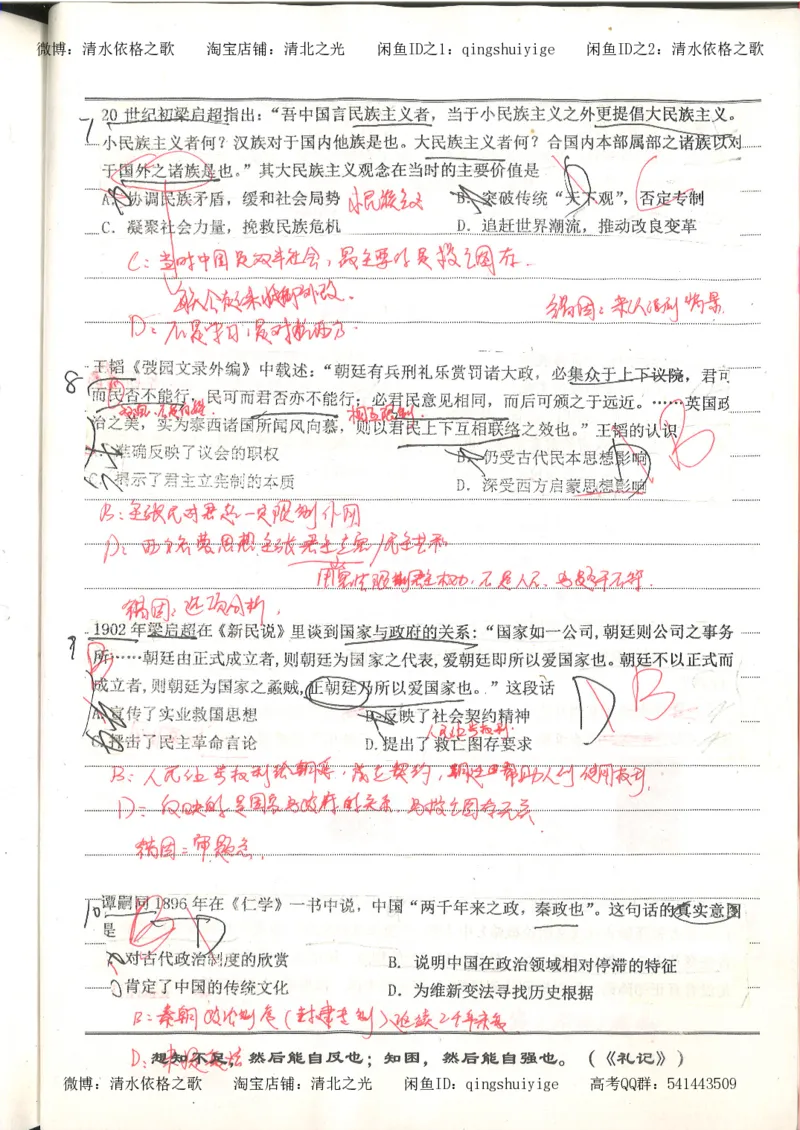 微博：清水依格之歌 淘宝店铺：清北之光 闲鱼ID之1：qingshuiyige 闲鱼ID之2：清水依格之歌
7 20 世纪初梁启超指出：“吾中国言民族主义者，当于小民族主义之外更提倡大民族主义。
小民族主义者何？汉族对于国内他族是也。大民族主义者何？合国内本部属部之诸族以对
于国外之诸族是也。”其大民族主义观念在当时的主要价值是
A. 协调民族矛盾，缓和社会局势 小民族主义 B. 突破传统“天下观”，否定专制
C. 凝聚社会力量，挽救民族危机 D. 追赶世界潮流，推动改良变革
C：当时中国是双半社会，最主要的是救亡图存.
错因：未认识到背景
D：不是学习，是对抗西方
8 王韬《弢园文录外编》中载述：“朝廷有兵刑礼乐赏罚诸大政，必集众于上下议院，君可
而民否不能行，民可而君否亦不能行；必君民意见相同，而后可颁之于远近。……英国政
相互限制
治之美，实为泰西诸国所闻风向慕，则以君民上下互相联络之效也。”王韬的认识 B
A. 准确反映了议会的职权 B. 仍受古代民本思想影响
C. 揭示了君主立宪制的本质 D. 深受西方启蒙思想影响
B：主张民对君起一定限制作用
D：西方启蒙思想主张君主立宪/民主共和
错因：选项分析.
9 1902 年梁启超在《新民说》里谈到国家与政府的关系：“国家如一公司，朝廷则公司之事务
所……朝廷由正式成立者，则朝廷为国家之代表，爱朝廷即所以爱国家也。朝廷不以正式而
成立者，则朝廷为国家之蟊贼，正朝廷乃所以爱国家也。”这段话 D B
A. 宣传了实业救国思想 B. 反映了社会契约精神
人民让与权利
C. 抨击了民主革命言论 D. 提出了救亡图存要求
B：人民让与权利给朝廷，落定契约，朝廷帮助人们使用权利.
D：反映的是国家与政府的关系，与救亡图存无关
错因：审题意.
10 谭嗣同 1896 年在《仁学》一书中说，中国“两千年来之政，秦政也”。这句话的真实意图
是 B D
A. 对古代政治制度的欣赏 B. 说明中国在政治领域相对停滞的特征
C. 肯定了中国的传统文化 D. 为维新变法寻找历史根据
B：秦朝政治制度（封建专制）延续2千年来
D：未提变法
想知不足，然后能自反也；知困，然后能自强也。（《礼记》）
微博：清水依格之歌 淘宝店铺：清北之光 闲鱼ID：qingshuiyige 高考QQ群：541443509